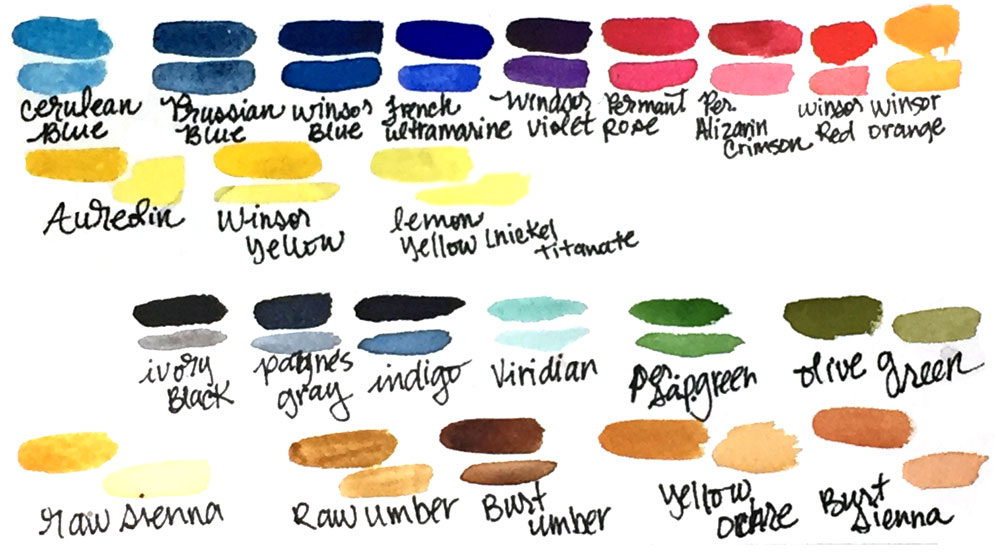 Cerulean Blue
Prussian Blue
Winsor Blue
French ultramarine
Windsor Violet
Permant Rose
Per. Alizarin Crimson
winsor Red
Winsor orange
Aureolin
Winsor Yellow
lemon Yellow (nickel Titanate
ivory Black
paynes gray
indigo
Viridian
per sapgreen
olive green
raw sienna
Raw umber
Burt umber
Yellow Ochre
Burt Sienna